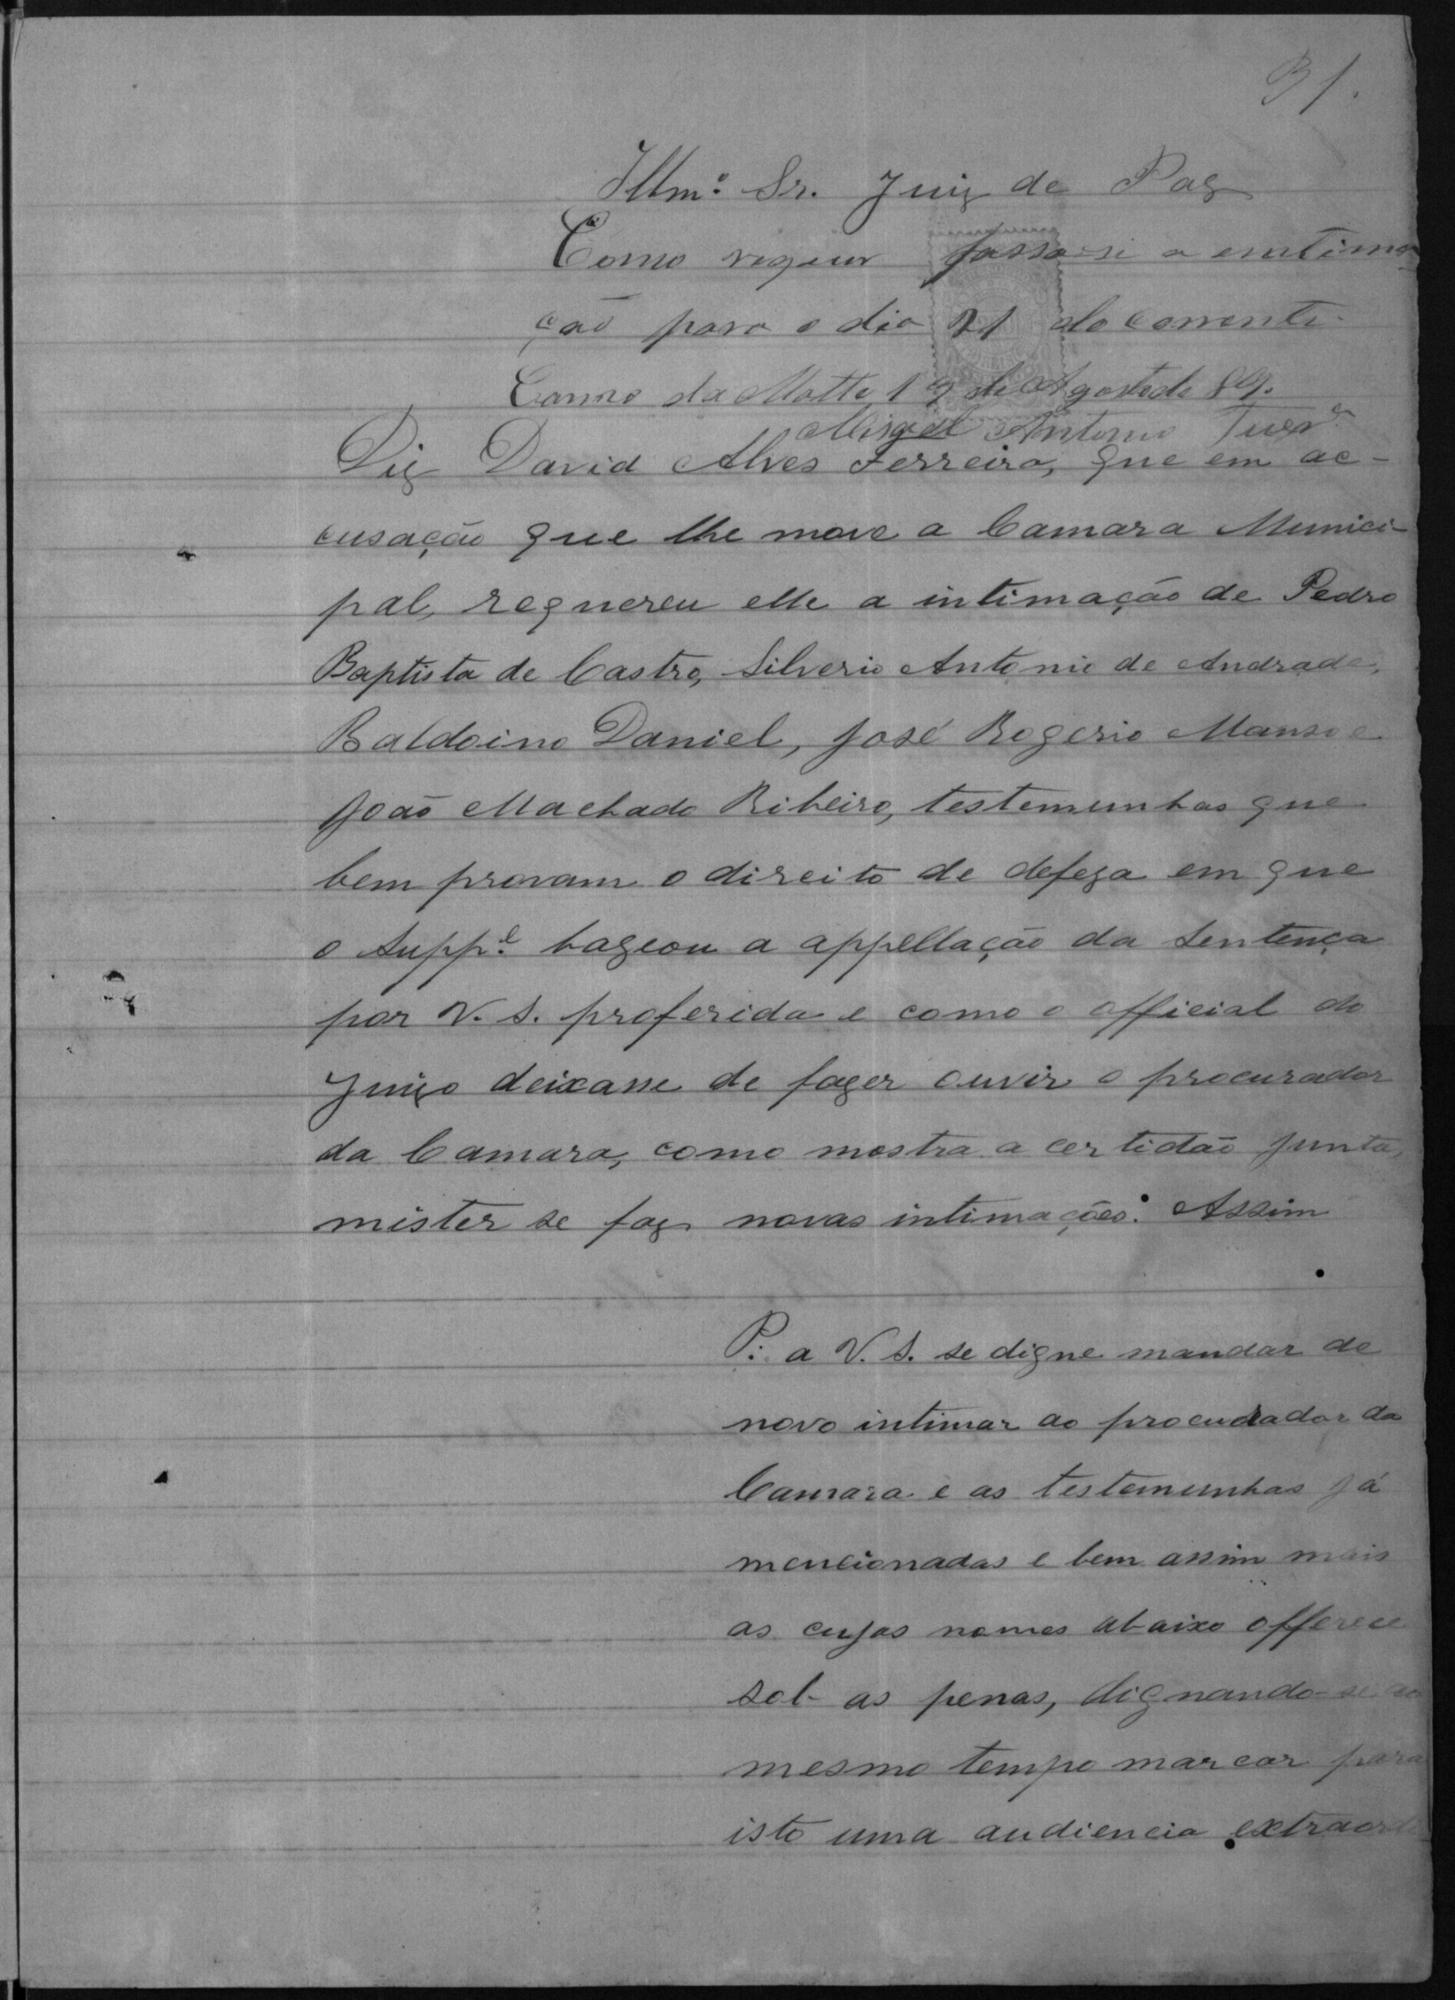 31.
Illmº Sr. Juiz de Paz
Como requer fassa-si a emtima
ção para o dia 21 do corrente.
Carmo da Matta 19 de Agosto de 89.
Miguel Antonio
Diz David Alves Ferreira, que em ac-
cusação que lhe move a Camara Munici-
pal, requereu elle a intimação de Pedro
Baptista de Castro, Silverio Antonio de Andrade,
Baldoino Daniel, José Rogerio Manso e
João Machado Ribeiro, testemunhas que
bem provam o direito de defeza em que
o Suppe. bazeou a appellação da Sentença
por V. S. proferida e como o official do
Juizo deixasse de fazer ouvir o procurador
da Camara, como mostra a certidão junta,
mister se faz novas intimações. Assim
P. a V. S. se digne mandar de
novo intimar ao procurador da
Camara e as testemunhas já
mencionadas e bem assim mais
as cujos nomes abaixo offerece
sob as penas, dignando-se ao
mesmo tempo marcar para
isto uma audiencia extraord